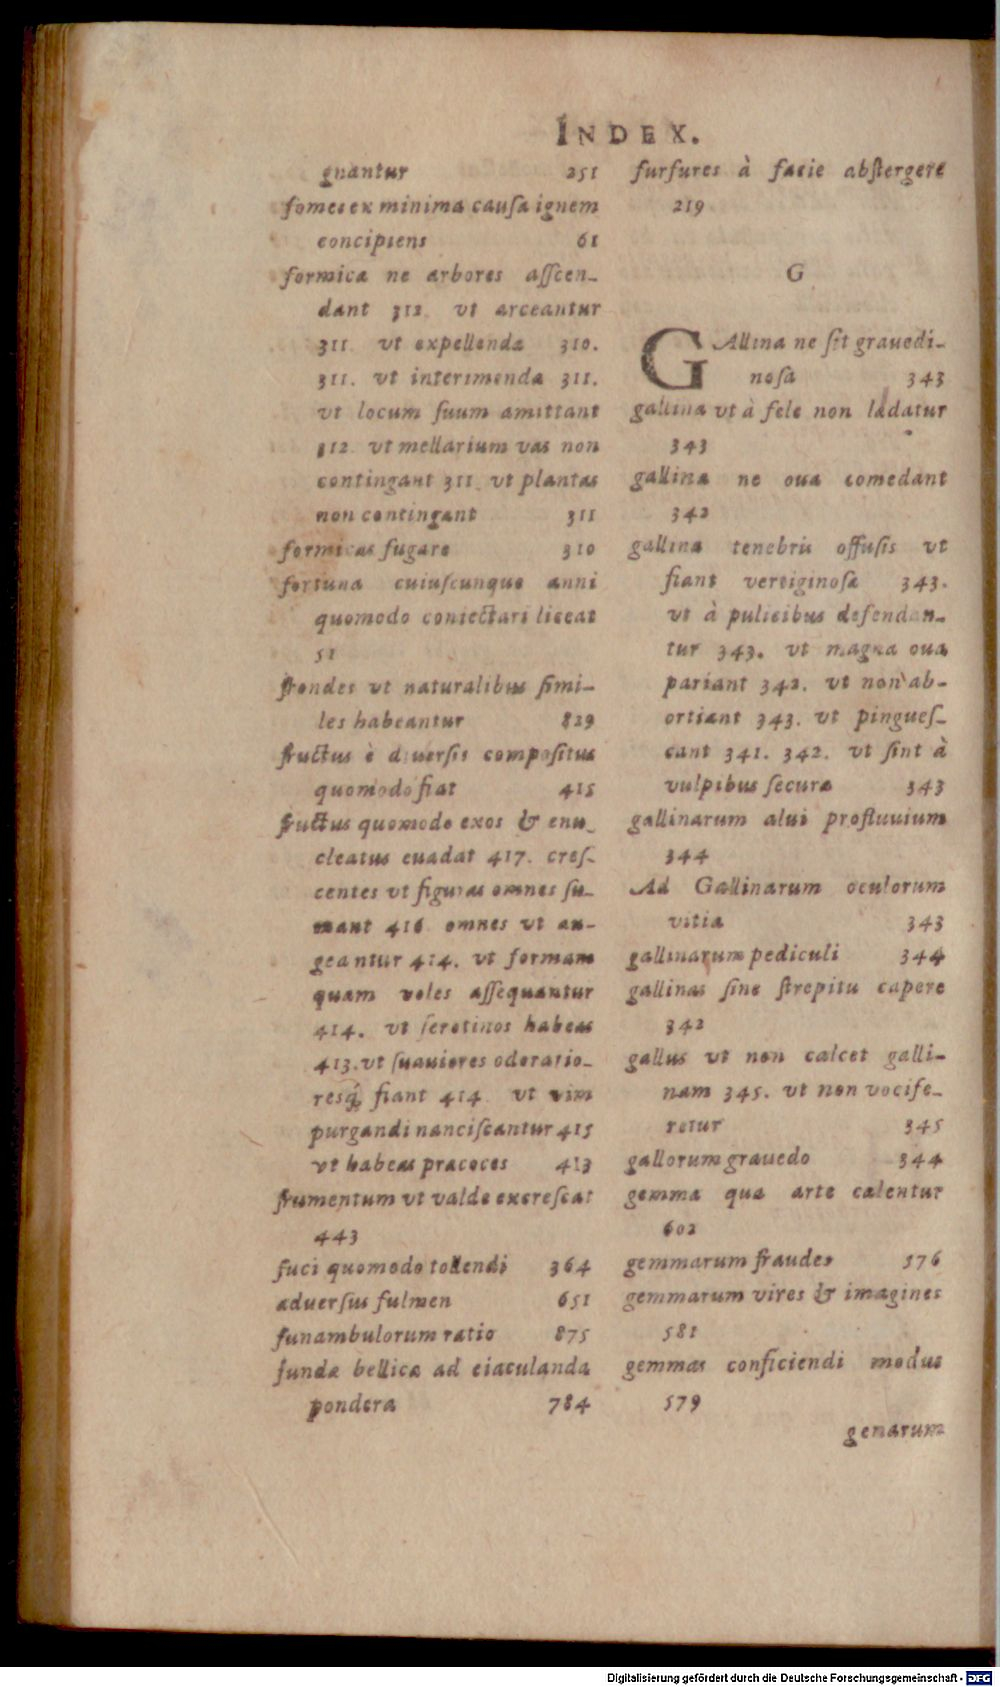 INDEX.
gnantur 251
fomes ex minima cauſa ignem
concipiens 61
formicæ ne arbores aſſcen-
dant 312. vt arceantur
311. vt expellendæ 310.
311. vt interimendæ 311.
vt locum ſuum amittant
312. vt mellarium vas non
contingant 311. vt plantas
non contingant 311
formicas fugare 310
fortuna cuiuſcunque anni
quomodo coniectari liceat
51
frondes vt naturalibus ſimi-
les habeantur 829
fructus è diuerſis compoſitus
quomodo fiat 415
fructus quomodo exos & enu-
cleatus euadat 417. creſ-
centes vt figuras omnes ſu-
mant 416 omnes vt au-
geantur 414. vt formam
quam voles aſſequantur
414. vt ſerotinos habeas
413. vt ſuauiores odoratio-
resq́; fiant 414. vt vim
purgandi nanciſcantur 415
vt habeas præcoces 413
frumentum vt valde excreſcat
443
fuci quomodo tollendi 364
aduerſus fulmen 651
funambulorum ratio 875
fundæ bellicæ ad eiaculanda
pondera 784
furfures à facie abſtergere
219
G
GAllina ne ſit grauedi-
noſa 343
gallina vt à fele non lædatur
343
gallinæ ne oua comedant
342
gallinæ tenebris offuſis vt
fiant vertiginoſæ 343.
vt à pulicibus defendan-
tur 343. vt magna oua
pariant 342. vt non ab-
ortiant 343. vt pingueſ-
cant 341. 342. vt ſint à
vulpibus ſecuræ 343
gallinarum alui profluuium
344
Ad Gallinarum oculorum
vitia 343
gallinarum pediculi 344
gallinas ſine ſtrepitu capere
342
gallus vt non calcet galli-
nam 345. vt non vocife-
retur 345
gallorum grauedo 344
gemmæ qua arte calentur
602
gemmarum fraudes 576
gemmarum vires & imagines
581
gemmas conficiendi modus
579
genarum
Digitalisierung gefördert durch die Deutsche Forschungsgemeinschaft - DFG